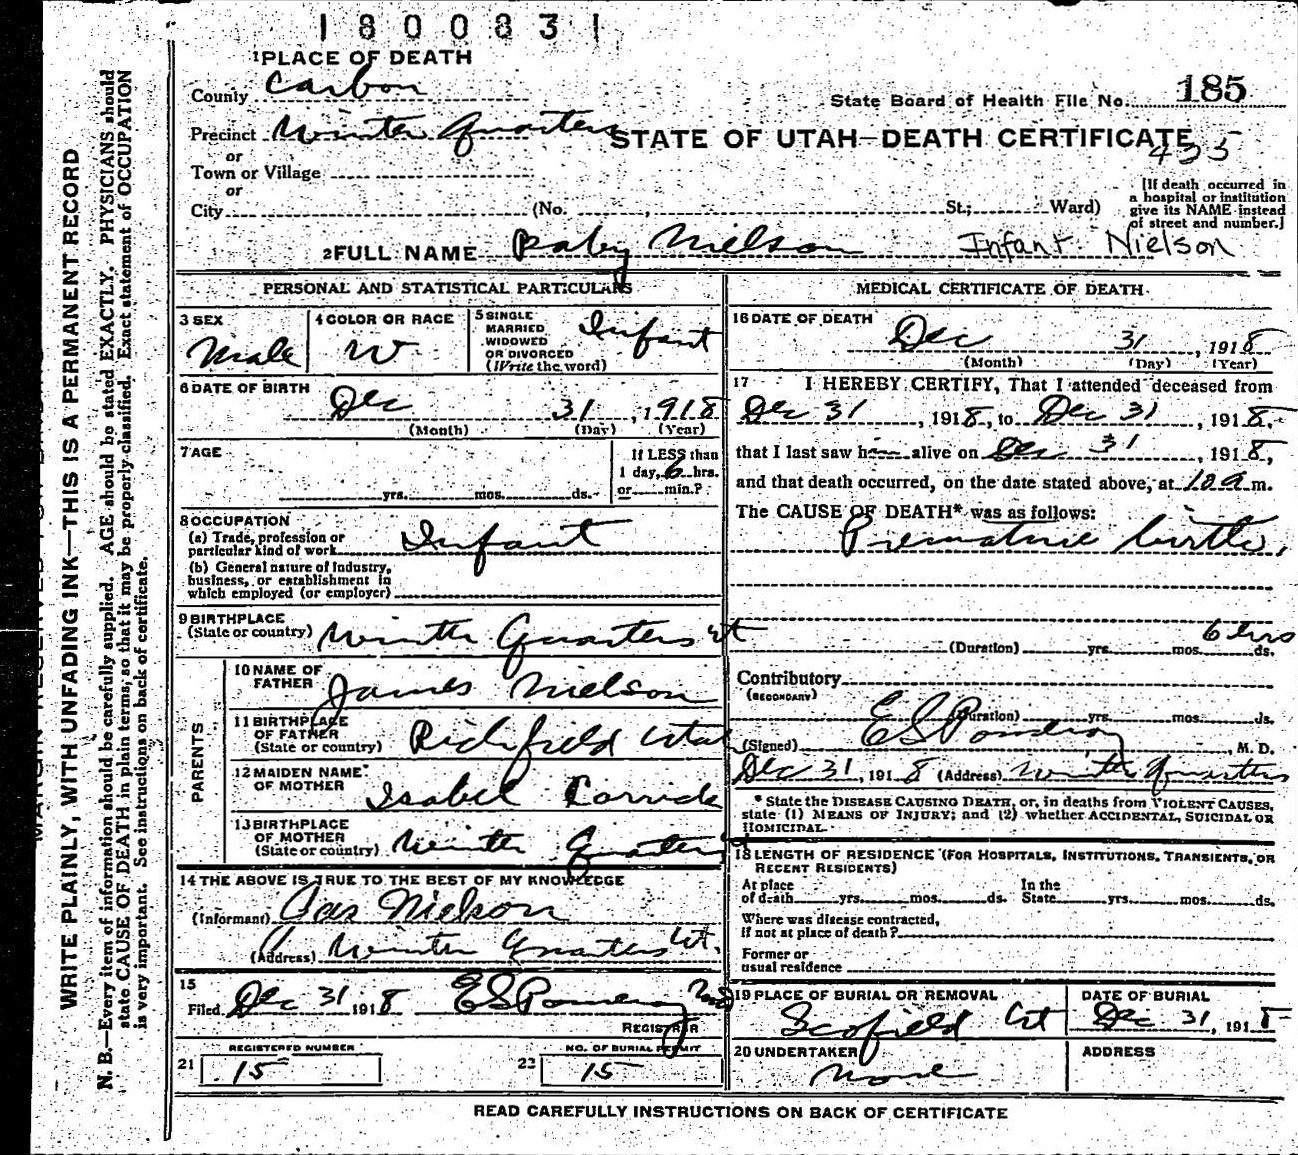 1800831
1 PLACE OF DEATH
County Carbon
State Board of Health File No. 185
Precinct Winter Quarters
STATE OF UTAH—DEATH CERTIFICATE
435
or
Town or Village
or
City (No. , St.; Ward)
[If death occurred in
a hospital or institution
give its NAME instead
of street and number.]
2 FULL NAME Baby Nielson Infant Nielson
PERSONAL AND STATISTICAL PARTICULARS
3 SEX
Male
4 COLOR OR RACE
W
5 SINGLE
MARRIED
WIDOWED
OR DIVORCED
(Write the word)
Infant
6 DATE OF BIRTH
Dec 31, 1918
(Month) (Day) (Year)
7 AGE
yrs. mos. ds.
If LESS than
1 day, 6 hrs.
or min.?
8 OCCUPATION
(a) Trade, profession or
particular kind of work Infant
(b) General nature of Industry,
business, or establishment in
which employed (or employer)
9 BIRTHPLACE
(State or country) Winter Quarters Ut
PARENTS
10 NAME OF
FATHER James Nielson
11 BIRTHPLACE
OF FATHER
(State or country) Richfield Utah
12 MAIDEN NAME
OF MOTHER Isabel
13 BIRTHPLACE
OF MOTHER
(State or country) Winter Quarters
14 THE ABOVE IS TRUE TO THE BEST OF MY KNOWLEDGE
(Informant) Jas Nielson
(Address) Winter Quarters Ut.
15
Filed Dec 31 1918 ES Pomeroy MD
REGISTRAR
REGISTERED NUMBER
21 15
NO. OF BURIAL PERMIT
22 15
MEDICAL CERTIFICATE OF DEATH
16 DATE OF DEATH
Dec 31, 1918
(Month) (Day) (Year)
17 I HEREBY CERTIFY, That I attended deceased from
Dec 31, 1918, to Dec 31, 1918.
that I last saw him alive on Dec 31, 1918,
and that death occurred, on the date stated above, at 10 a m.
The CAUSE OF DEATH* was as follows:
Premature birth,
6 hrs
(Duration) yrs. mos. ds.
Contributory
(SECONDARY)
(Duration) yrs. mos. ds.
(Signed) ES Pomeroy, M. D.
Dec 31, 1918 (Address) Winter Quarters
* State the DISEASE CAUSING DEATH, or, in deaths from VIOLENT CAUSES,
state (1) MEANS OF INJURY; and (2) whether ACCIDENTAL, SUICIDAL OR
HOMICIDAL.
18 LENGTH OF RESIDENCE (FOR HOSPITALS, INSTITUTIONS, TRANSIENTS, OR
RECENT RESIDENTS)
At place
of death yrs. mos. ds.
In the
State yrs. mos. ds.
Where was disease contracted,
if not at place of death?
Former or
usual residence
19 PLACE OF BURIAL OR REMOVAL
Scofield Ut
DATE OF BURIAL
Dec 31, 1918
20 UNDERTAKER
None
ADDRESS
READ CAREFULLY INSTRUCTIONS ON BACK OF CERTIFICATE
WRITE PLAINLY, WITH UNFADING INK—THIS IS A PERMANENT RECORD
N. B.—Every item of information should be carefully supplied. AGE should be stated EXACTLY. PHYSICIANS should
state CAUSE OF DEATH in plain terms, so that it may be properly classified. Exact statement of OCCUPATION
is very important. See instructions on back of certificate.